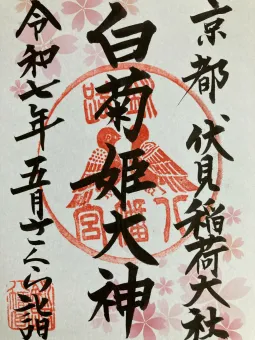 京都 伏見稲荷大社
白菊姫大神
令和七年 五月
八幡宮